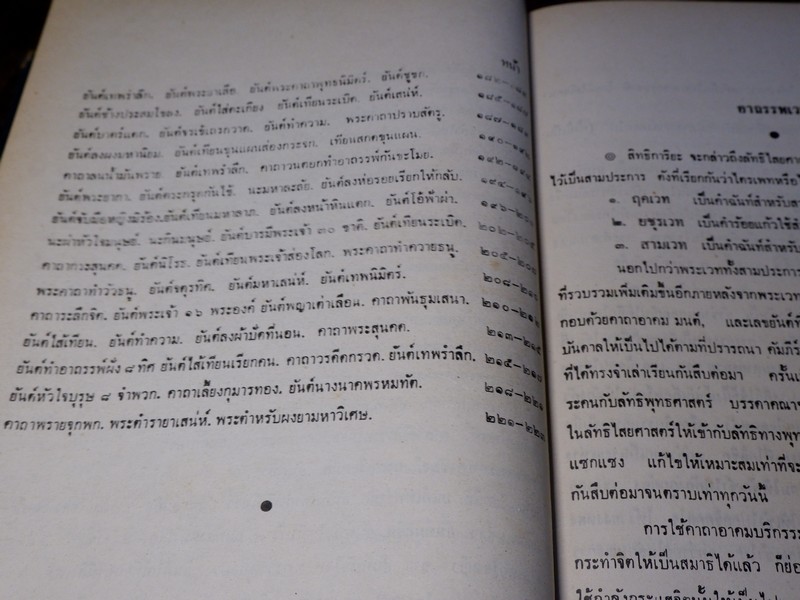 หน้า
ยันต์เทพรำลึก. ยันต์พระยาเสือ. ยันต์พระคาถาพุทธนิมิตร์. ยันต์ชูชก.
ยันต์ช้างประสมโขลง. ยันต์ไส่ตะเกียง ยันต์เทียนระเบิด. ยันต์เสน่ห์. ๑๘๕–๑๘๗
ยันต์บาตร์แตก. ยันต์จรเข้แถกวาด. ยันต์ทำความ. พระคาถาปราบสัตรู. ๑๘๗–๑๘๙
ยันต์ลงผงมหานิยม. ยันต์เทียนขุนแผนส่องกระจก. เทียนสกดขุนแผน. ๑๙๐–๑๙๒
คาถาลนน้ำมันพราย. ยันต์เทพรำลึก. คาถาวนดยกทำอาถรรพ์กันขะโมย. ๑๙๒–๑๙๔
ยันต์พระยากา. ยันต์ตระกรุดกันใช้. นะมหาละลัย. ยันต์ลงห่อรอยเรียกให้กลับ. ๑๙๔–๑๙๖
ยันต์ลงหน้าหินแตก. ยันต์โอ้ฟ้าผ่า. ๑๙๖–๒๐๑
นะผ่าหัวใจมนุษย์. นะกินมนุษย์. ยันต์บารมีพระเจ้า ๓๐ ชาติ. ยันต์เทียนระเบิด. ๒๐๒–๒๐๔
คาถากาะสุนคด. ยันต์นิโรธ. ยันต์เทียนพระเจ้าส่องโลก. พระคาถาทำควายธนู. ๒๐๕–๒๐๗
พระคาถาทำวัวธนู. ยันต์จตุรทิศ. ยันต์มหาเสน่ห์. ยันต์เทพนิมิตร์. ๒๐๘–๒๑๐
คาถาระลึกจิต. ยันต์พระเจ้า ๑๖ พระองค์ ยันต์พญาเต่าเลือน. คาถาพันธุมเสนา. ๒๑๐–๒๑๒
ยันต์ไส้เทียน. ยันต์ทำความ. ยันต์ลงผ้าปัดที่นอน. คาถาพระสุนคด. ๒๑๓–๒๑๕
ยันต์ทำอาถรรพ์ฝัง ๘ ทิศ ยันต์ไส้เทียนเรียกคน. คาถาวรคีตกรวด. ยันต์เทพรำลึก. ๒๑๕–๒๑๗
ยันต์หัวใจบุรุษ ๘ จำพวก. คาถาเลี้ยงกุมารทอง. ยันต์นางนาคพรหมทัต. ๒๑๘–๒๒๑
คาถาพรายจุกพก. พระตำรายาเสน่ห์. พระตำหรับผงยามหาวิเศษ. ๒๒๑–๒๒๓
คาถรรพเว
สิทธิการิยะ จะกล่าวถึงลัทธิไสยศา
ไว้เป็นสามประการ ดังที่เรียกกันว่าไตรเพทหรือไ
๑. ฤคเวท เป็นคำฉันท์สำหรับส
๒. ยชุรเวท เป็นคำร้อยแก้วใช้ส
๓. สามเวท เป็นคำฉันท์สำหรับ
นอกไปกว่าพระเวททั้งสามประการ
ที่รวบรวมเพิ่มเติมขึ้นอีกภายหลังจากพระเวท
กอบด้วยคาถาอาคม มนต์, และเลขยันต์ที่
บันดาลให้เป็นไปได้ตามที่ปรารถนา คัมภีร์
ที่ได้ทรงจำเล่าเรียนกันสืบต่อมา ครั้นเ
ระคนกับลัทธิพุทธศาสตร์ บรรดาคณา
ในลัทธิไสยศาสตร์ให้เข้ากับลัทธิทางพุท
แซกแซง แก้ไขให้เหมาะสมเท่าที่จะ
กันสืบต่อมาจนตราบเท่าทุกวันนี้
การใช้คาถาอาคมบริกรร
กระทำจิตให้เป็นสมาธิได้แล้ว ก็ย่อ
ใช้กำลังกระแสจิตนั้นให้เป็นไป